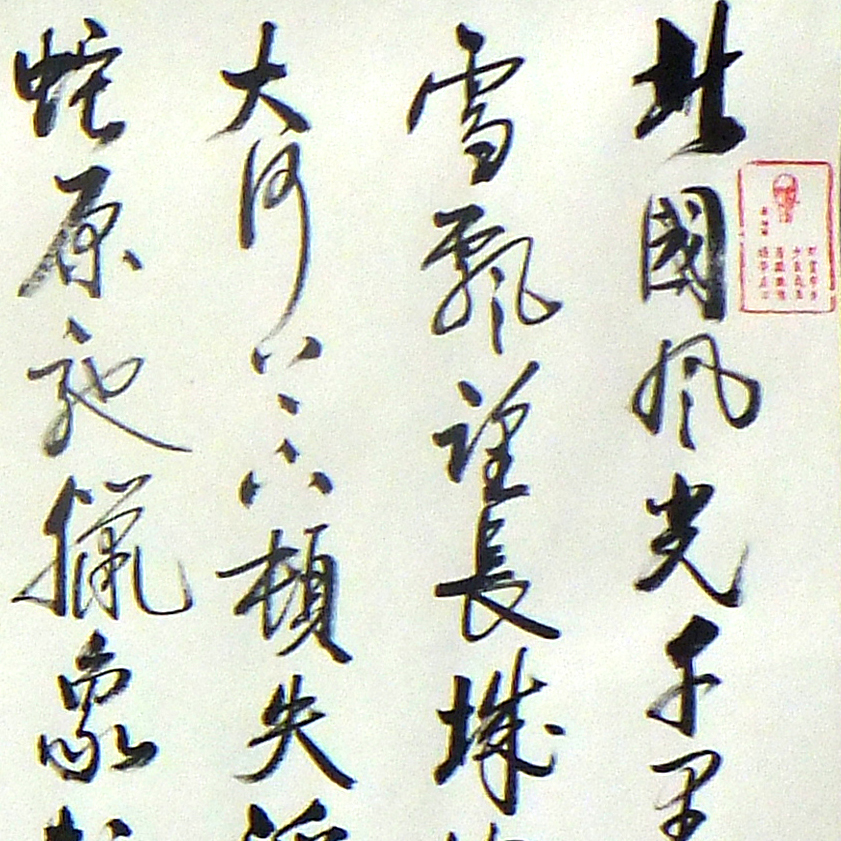 北國風光千里
雪飄望長城
大河上下頓失
蛇原馳獵象